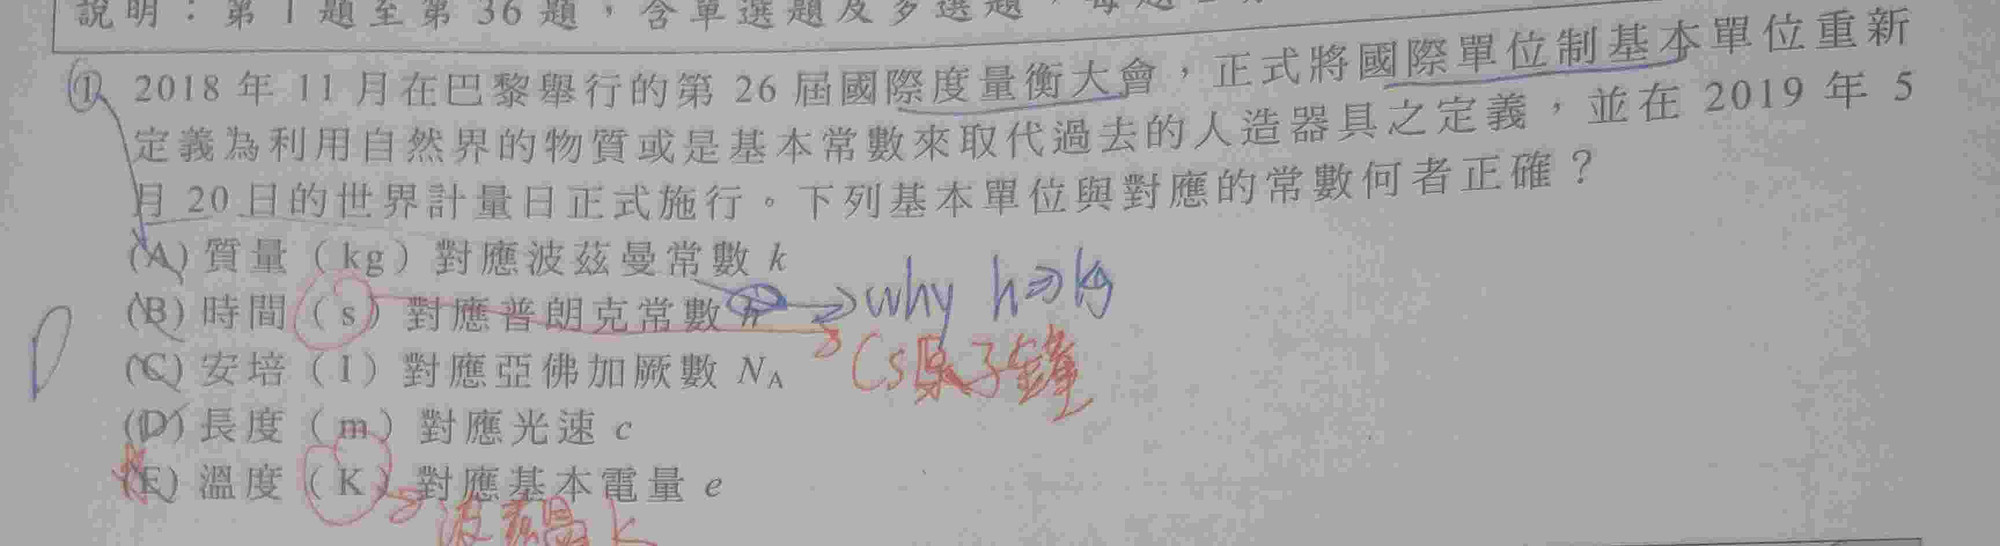 說明:第1題至第36題,含單選題及多選題,每題
1 2018年11月在巴黎舉行的第26屆國際度量衡大會,正式將國際單位制基本單位重新
定義為利用自然界的物質或是基本常數來取代過去的人造器具之定義,並在2019年5
月20日的世界計量日正式施行。下列基本單位與對應的常數何者正確?
(A)質量(kg)對應波茲曼常數 k
(B)時間(s)對應普朗克常數 h
why h⇒kg
Cs原子鐘
(C)安培(I)對應亞佛加厥數 NA
D
(D)長度(m)對應光速 c
(E)溫度(K)對應基本電量 e
波茲曼 k